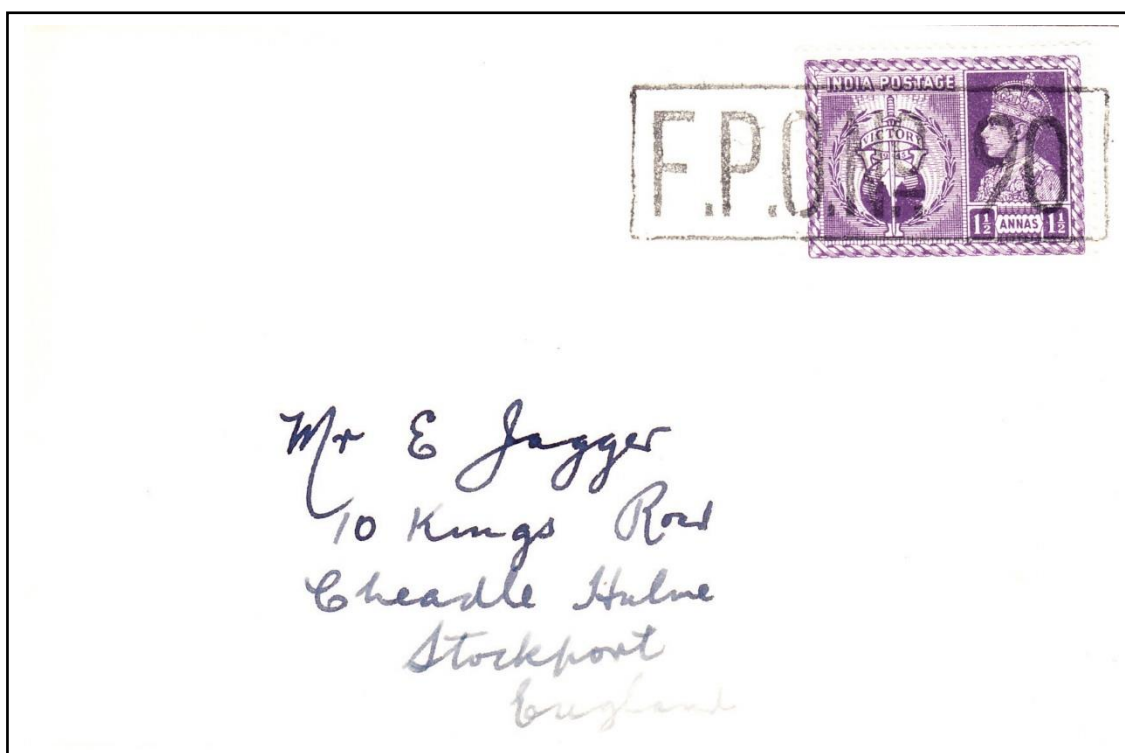 INDIA POSTAGE
VICTORY
F.P.O.Nº. 90
1½ ANNAS 1½
Mr E Jagger
10 Kings Road
Cheadle Hulme
Stockport
England